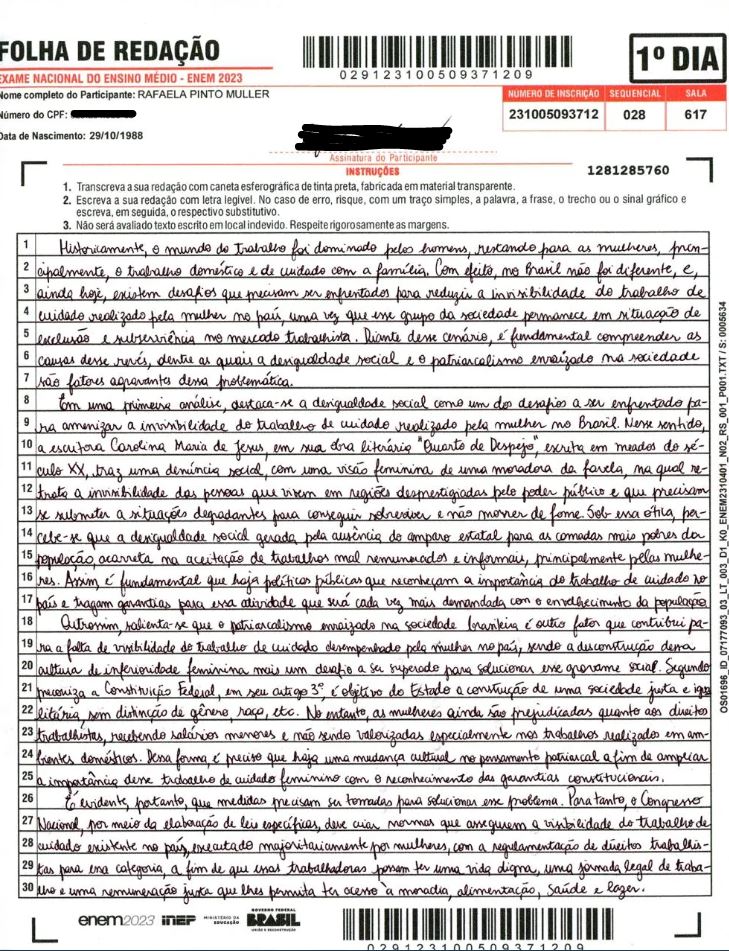 FOLHA DE REDAÇÃO
EXAME NACIONAL DO ENSINO MÉDIO - ENEM 2023
029123100509371209
1º DIA
Nome completo do Participante: RAFAELA PINTO MULLER
Número do CPF:
Data de Nascimento: 29/10/1988
NÚMERO DE INSCRIÇÃO SEQUENCIAL SALA
231005093712 028 617
Assinatura do Participante
INSTRUÇÕES
1281285760
1. Transcreva a sua redação com caneta esferográfica de tinta preta, fabricada em material transparente.
2. Escreva a sua redação com letra legível. No caso de erro, risque, com um traço simples, a palavra, a frase, o trecho ou o sinal gráfico e
escreva, em seguida, o respectivo substitutivo.
3. Não será avaliado texto escrito em local indevido. Respeite rigorosamente as margens.
1 Historicamente, o mundo do trabalho foi dominado pelos homens, restando para as mulheres, prin-
2 cipalmente, o trabalho doméstico e de cuidado com a família. Com efeito, no Brasil não foi diferente, e,
3 ainda hoje, existem desafios que precisam ser enfrentados para reduzir a invisibilidade do trabalho de
4 cuidado realizado pela mulher no país, uma vez que esse grupo da sociedade permanece em situação de
5 exclusão e subserviência no mercado trabalhista. Diante desse cenário, é fundamental compreender as
6 causas desse revés, dentre as quais a desigualdade social e o patriarcalismo enraizado na sociedade
7 são fatores agravantes dessa problemática.
8 Em uma primeira análise, destaca-se a desigualdade social como um dos desafios a ser enfrentado pa-
9 ra amenizar a invisibilidade do trabalho de cuidado realizado pela mulher no Brasil. Nesse sentido,
10 a escritora Carolina Maria de Jesus, em sua obra literária "Quarto de Despejo", escrita em meados do sé-
11 culo XX, traz uma denúncia social, com uma visão feminina de uma moradora da favela, na qual re-
12 trata a invisibilidade das pessoas que vivem em regiões desprestigiadas pelo poder público e que precisam
13 se submeter a situações degradantes para conseguir sobreviver e não morrer de fome. Sob essa ótica, per-
14 cebe-se que a desigualdade social gerada pela ausência do amparo estatal para as camadas mais pobres da
15 população, acarreta na aceitação de trabalhos mal remunerados e informais, principalmente pelas mulhe-
16 res. Assim é fundamental que haja políticas públicas que reconheçam a importância do trabalho de cuidado no
17 país e tragam garantias para essa atividade que será cada vez mais demandada com o envelhecimento da população.
18 Outrossim, salienta-se que o patriarcalismo enraizado na sociedade brasileira é outro fator que contribui pa-
19 ra a falta de visibilidade do trabalho de cuidado desempenhado pela mulher no país, sendo a desconstrução dessa
20 cultura de inferioridade feminina mais um desafio a ser superado para solucionar esse gravame social. Segundo
21 preconiza a Constituição Federal, em seu artigo 3º, é objetivo do Estado a construção de uma sociedade justa e igua
22 litária, sem distinção de gênero, raça, etc. No entanto, as mulheres ainda são prejudicadas quanto aos direitos
23 trabalhistas, recebendo salários menores e não sendo valorizadas especialmente nos trabalhos realizado em am-
24 bientes domésticos. Dessa forma, é preciso que haja uma mudança cultural no pensamento patriarcal a fim de ampliar
25 a importância desse trabalho de cuidado feminino com o reconhecimento das garantias constitucionais.
26 É evidente, portanto, que medidas precisam ser tomadas para solucionar esse problema. Para tanto, o Congresso
27 Nacional, por meio da elaboração de leis específicas, deve criar normas que assegurem a visibilidade do trabalho de
28 cuidado existente no país, executado majoritariamente por mulheres, com a regulamentação de direitos trabalhis-
29 tas para essa categoria, a fim de que essas trabalhadoras possam ter uma vida digna, uma jornada legal de traba-
30 lho e uma remuneração justa que lhes permita ter acesso a moradia, alimentação, saúde e lazer.
OS01696_ID_07177093_03_LT_003_D1_K0_ENEM2310401_N02_RS_001_P001.TXT / S: 0005634
enem2023 inep MINISTÉRIO DA EDUCAÇÃO GOVERNO FEDERAL BRASIL UNIÃO E RECONSTRUÇÃO
029123100509371209